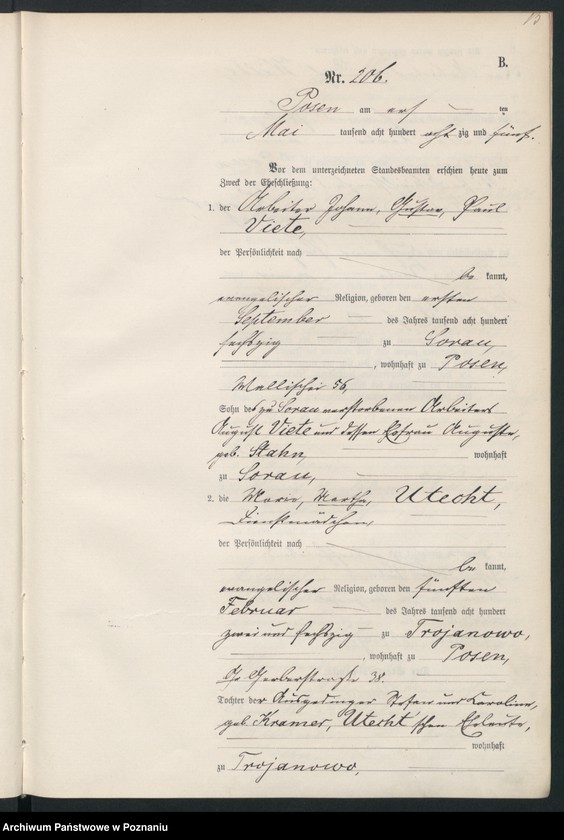 13
B.
Nr. 206.
Posen am
Mai tausend acht hundert achtzig und fünf.
Vor dem unterzeichneten Standesbeamten erschien heute zum
Zweck der Eheschließung:
1. der Arbeiter Johann, Gustav, Paul
Viete,
der Persönlichkeit nach
be kannt,
evangelischer Religion, geboren den ersten
September des Jahres tausend acht hundert
sechszig zu Sorau,
, wohnhaft zu Posen,
Wallischei 56,
Sohn des zu Sorau verstorbenen Arbeiters
August Viete und dessen Ehefrau Auguste,
geb. Stahn, wohnhaft
zu Sorau,
2. die Marie, Martha, Utecht,
Dienstmädchen,
der Persönlichkeit nach
be kannt,
evangelischer Religion, geboren den fünften
Februar des Jahres tausend acht hundert
zwei und sechszig zu Trojanowo,
, wohnhaft zu Posen,
Gr. Gerberstraße 38.
Tochter der Ausgedinger Stefan und Caroline,
geb. Kramer, Utecht'schen Eheleute,
wohnhaft
zu Trojanowo,
Archiwum Państwowe w Poznaniu